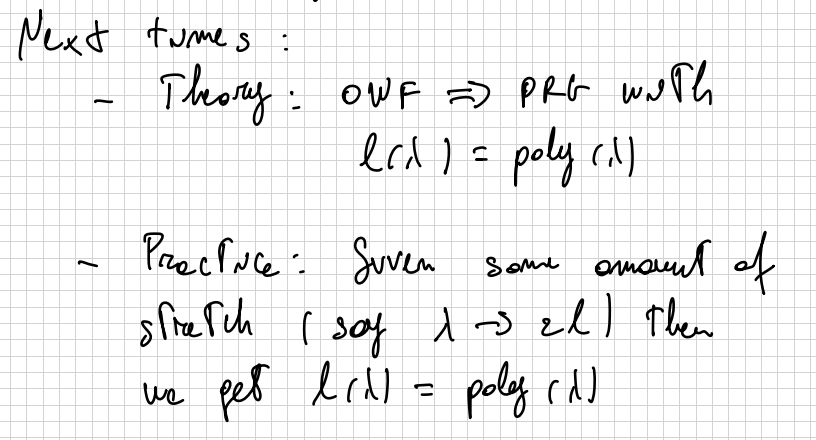 Next times:
- Theory: OWF => PRG with
l(λ) = poly(λ)
- Practice: Given some amount of
stretch (say λ -> 2λ) then
we get l(λ) = poly(λ)